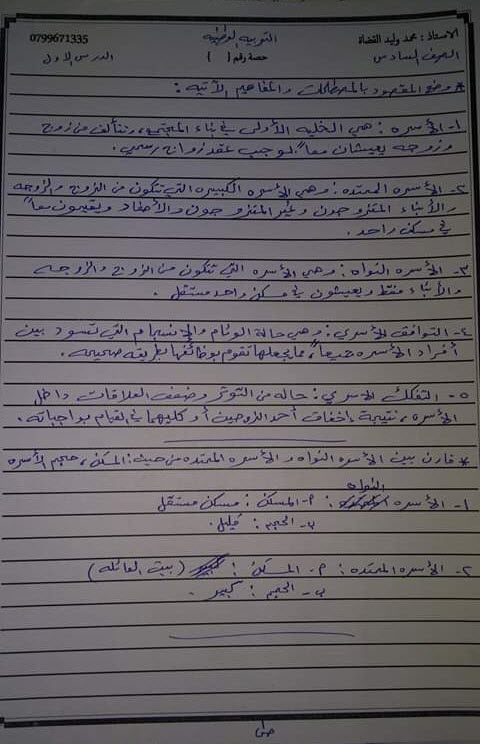 الاستاذ : محمد وليد القضاة
التربيه الوطنيه
0799671335
الصف السادس
حصة رقم ( )
الدرس الاول
* وضح المقصود بالمصطلحات والمفاهيم الآتيه :
١- الأسره : هي الخليه الأولى في بناء المجتمع، وتتألف من زوج
وزوجه يعيشان معاً بموجب عقد زواج رسمي .
٢- الأسره الممتده : وهي الأسره الكبيره التي تتكون من الزوج والزوجه
والأبناء المتزوجون وغير المتزوجون والأحفاد ويقيمون معاً
في مسكن واحد .
٣- الأسره النواه : وهي الأسره التي تتكون من الزوج والزوجه
والأبناء فقط ويعيشون في مسكن واحد مستقل .
٤- التوافق الأسري : وهي حالة الوئام والإنسجام التي تسود بين
أفراد الأسره جميعاً، مما يجعلها تقوم بوظائفها بطريقه صحيحه .
٥- التفكك الاسري : حاله من التوتر وضعف العلاقات داخل
الأسره، نتيجة إخفاق أحد الزوجين أو كليهما في القيام بواجباته .
* قارن بين الأسره النواه والأسره الممتده من حيث : المسكن، حجم الأسره
النواه
١- الأسره : أ- المسكن : مسكن مستقل
ب- الحجم : قليل .
٢- الأسره الممتده : أ- المسكن : (بيت العائله)
ب- الحجم : كبير .